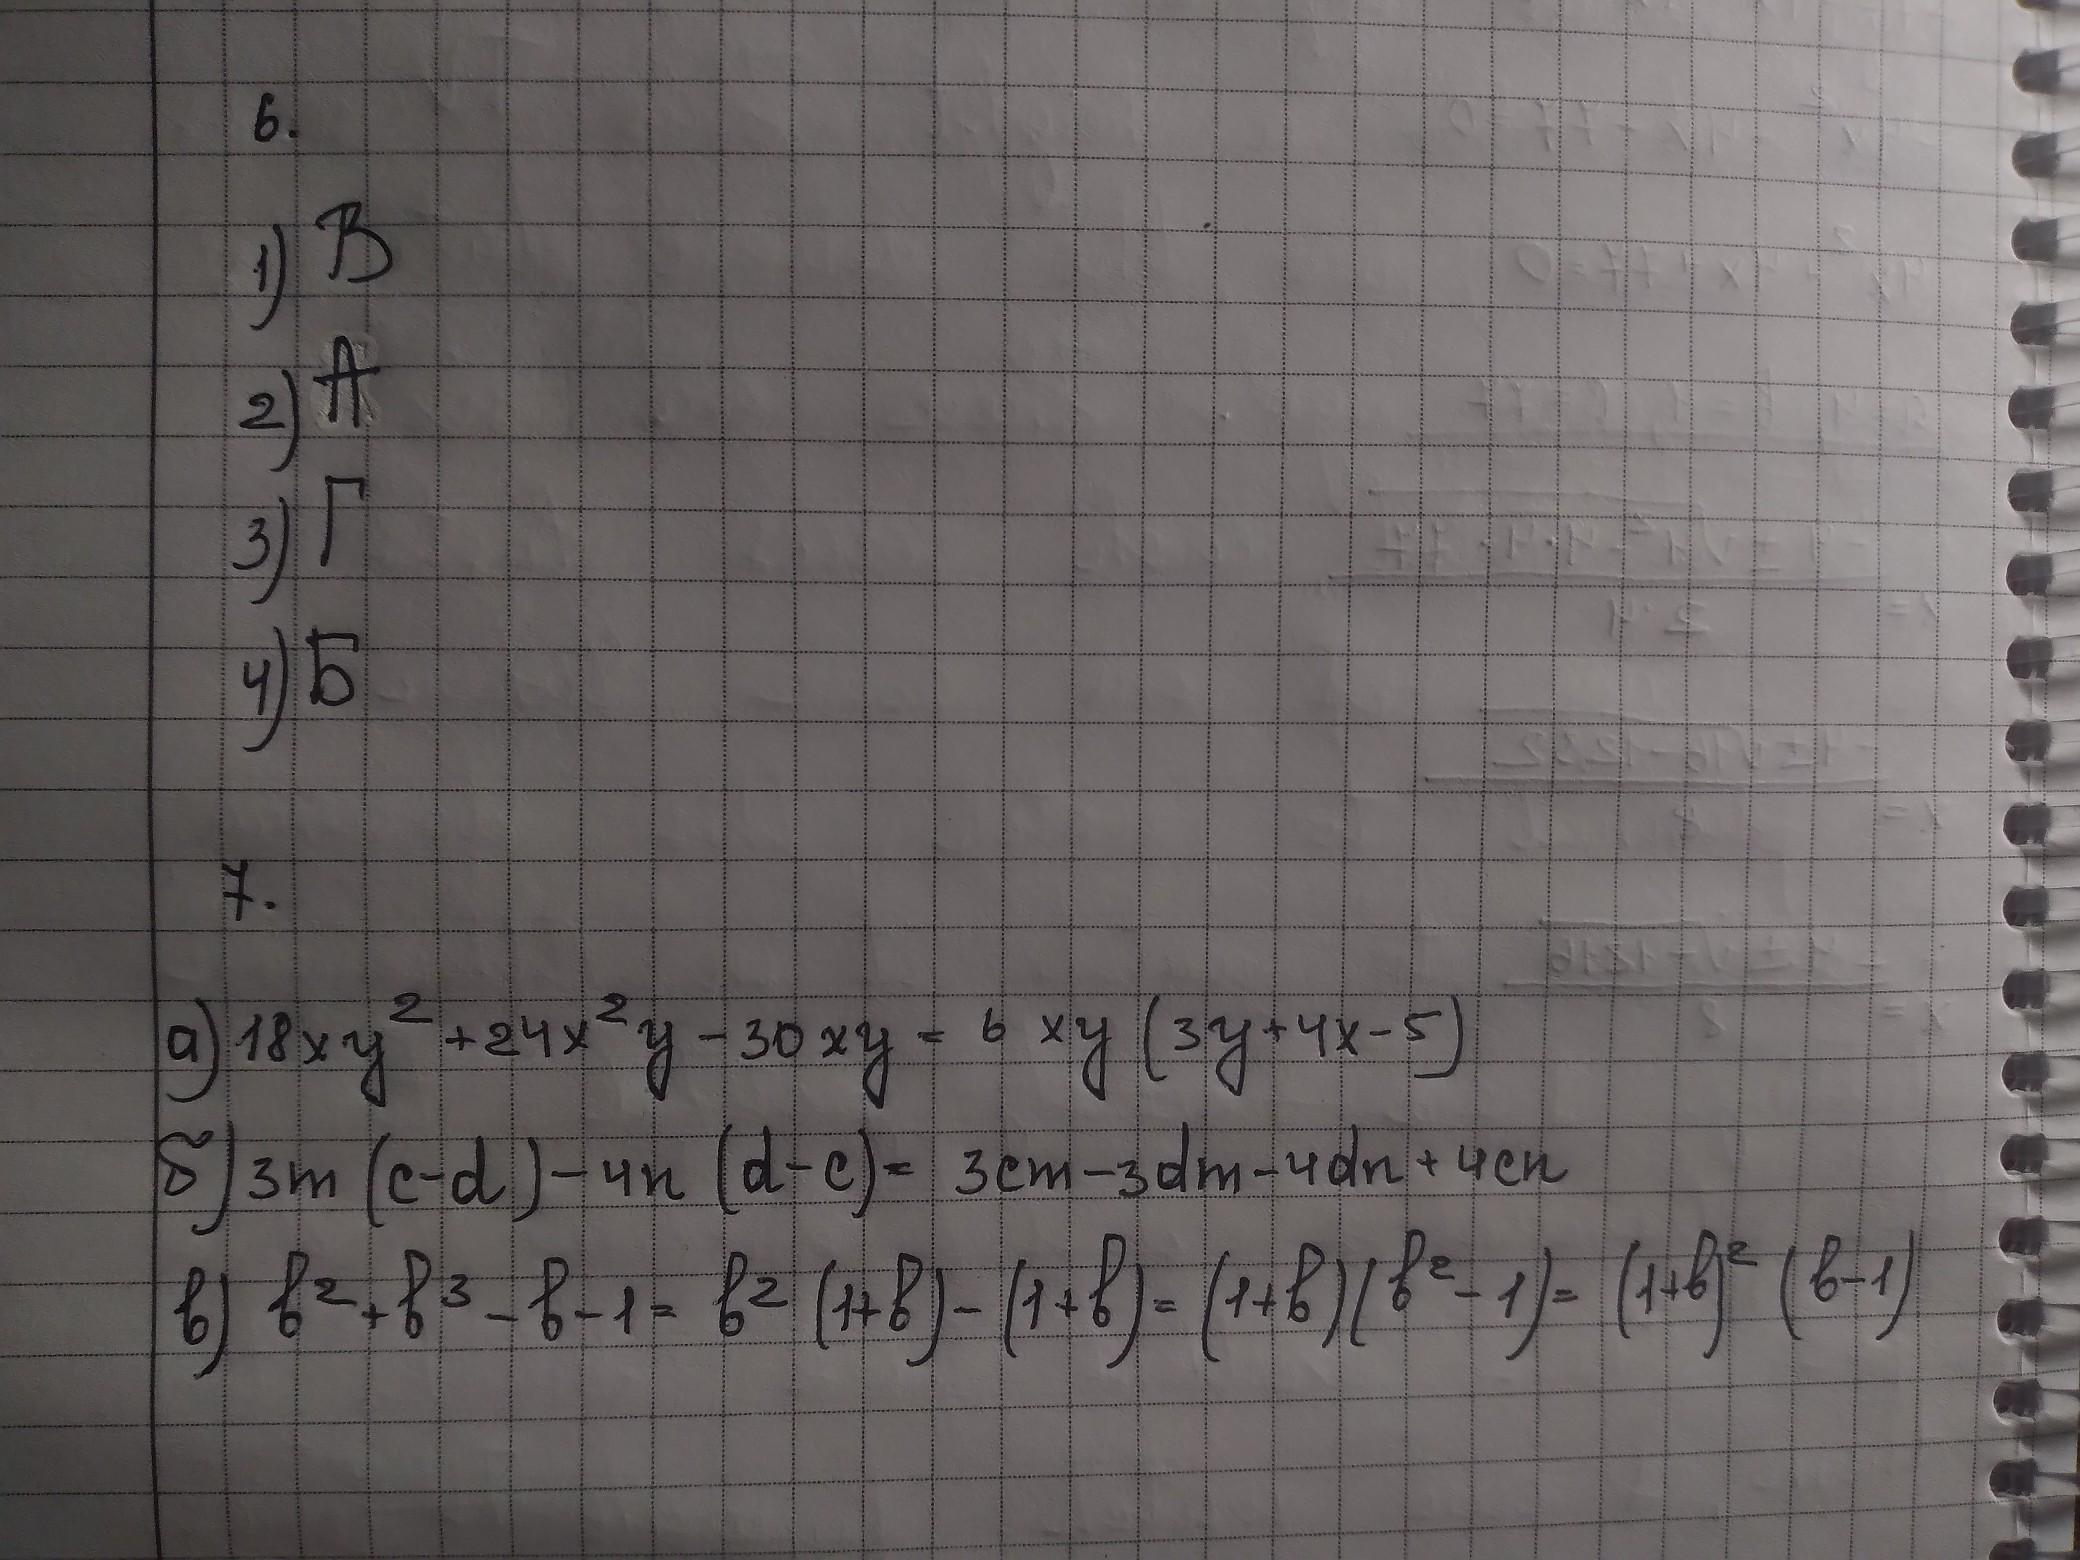 6.
1) В
2) А
3) Г
4) Б
7.
а) 18xy² + 24x²y - 30xy = 6xy (3y + 4x - 5)
б) 3m (c-d) - 4n (d-c) = 3cm - 3dm - 4dn + 4cn
в) b² + b³ - b - 1 = b² (1+b) - (1+b) = (1+b)(b² - 1) = (1+b)² (b-1)